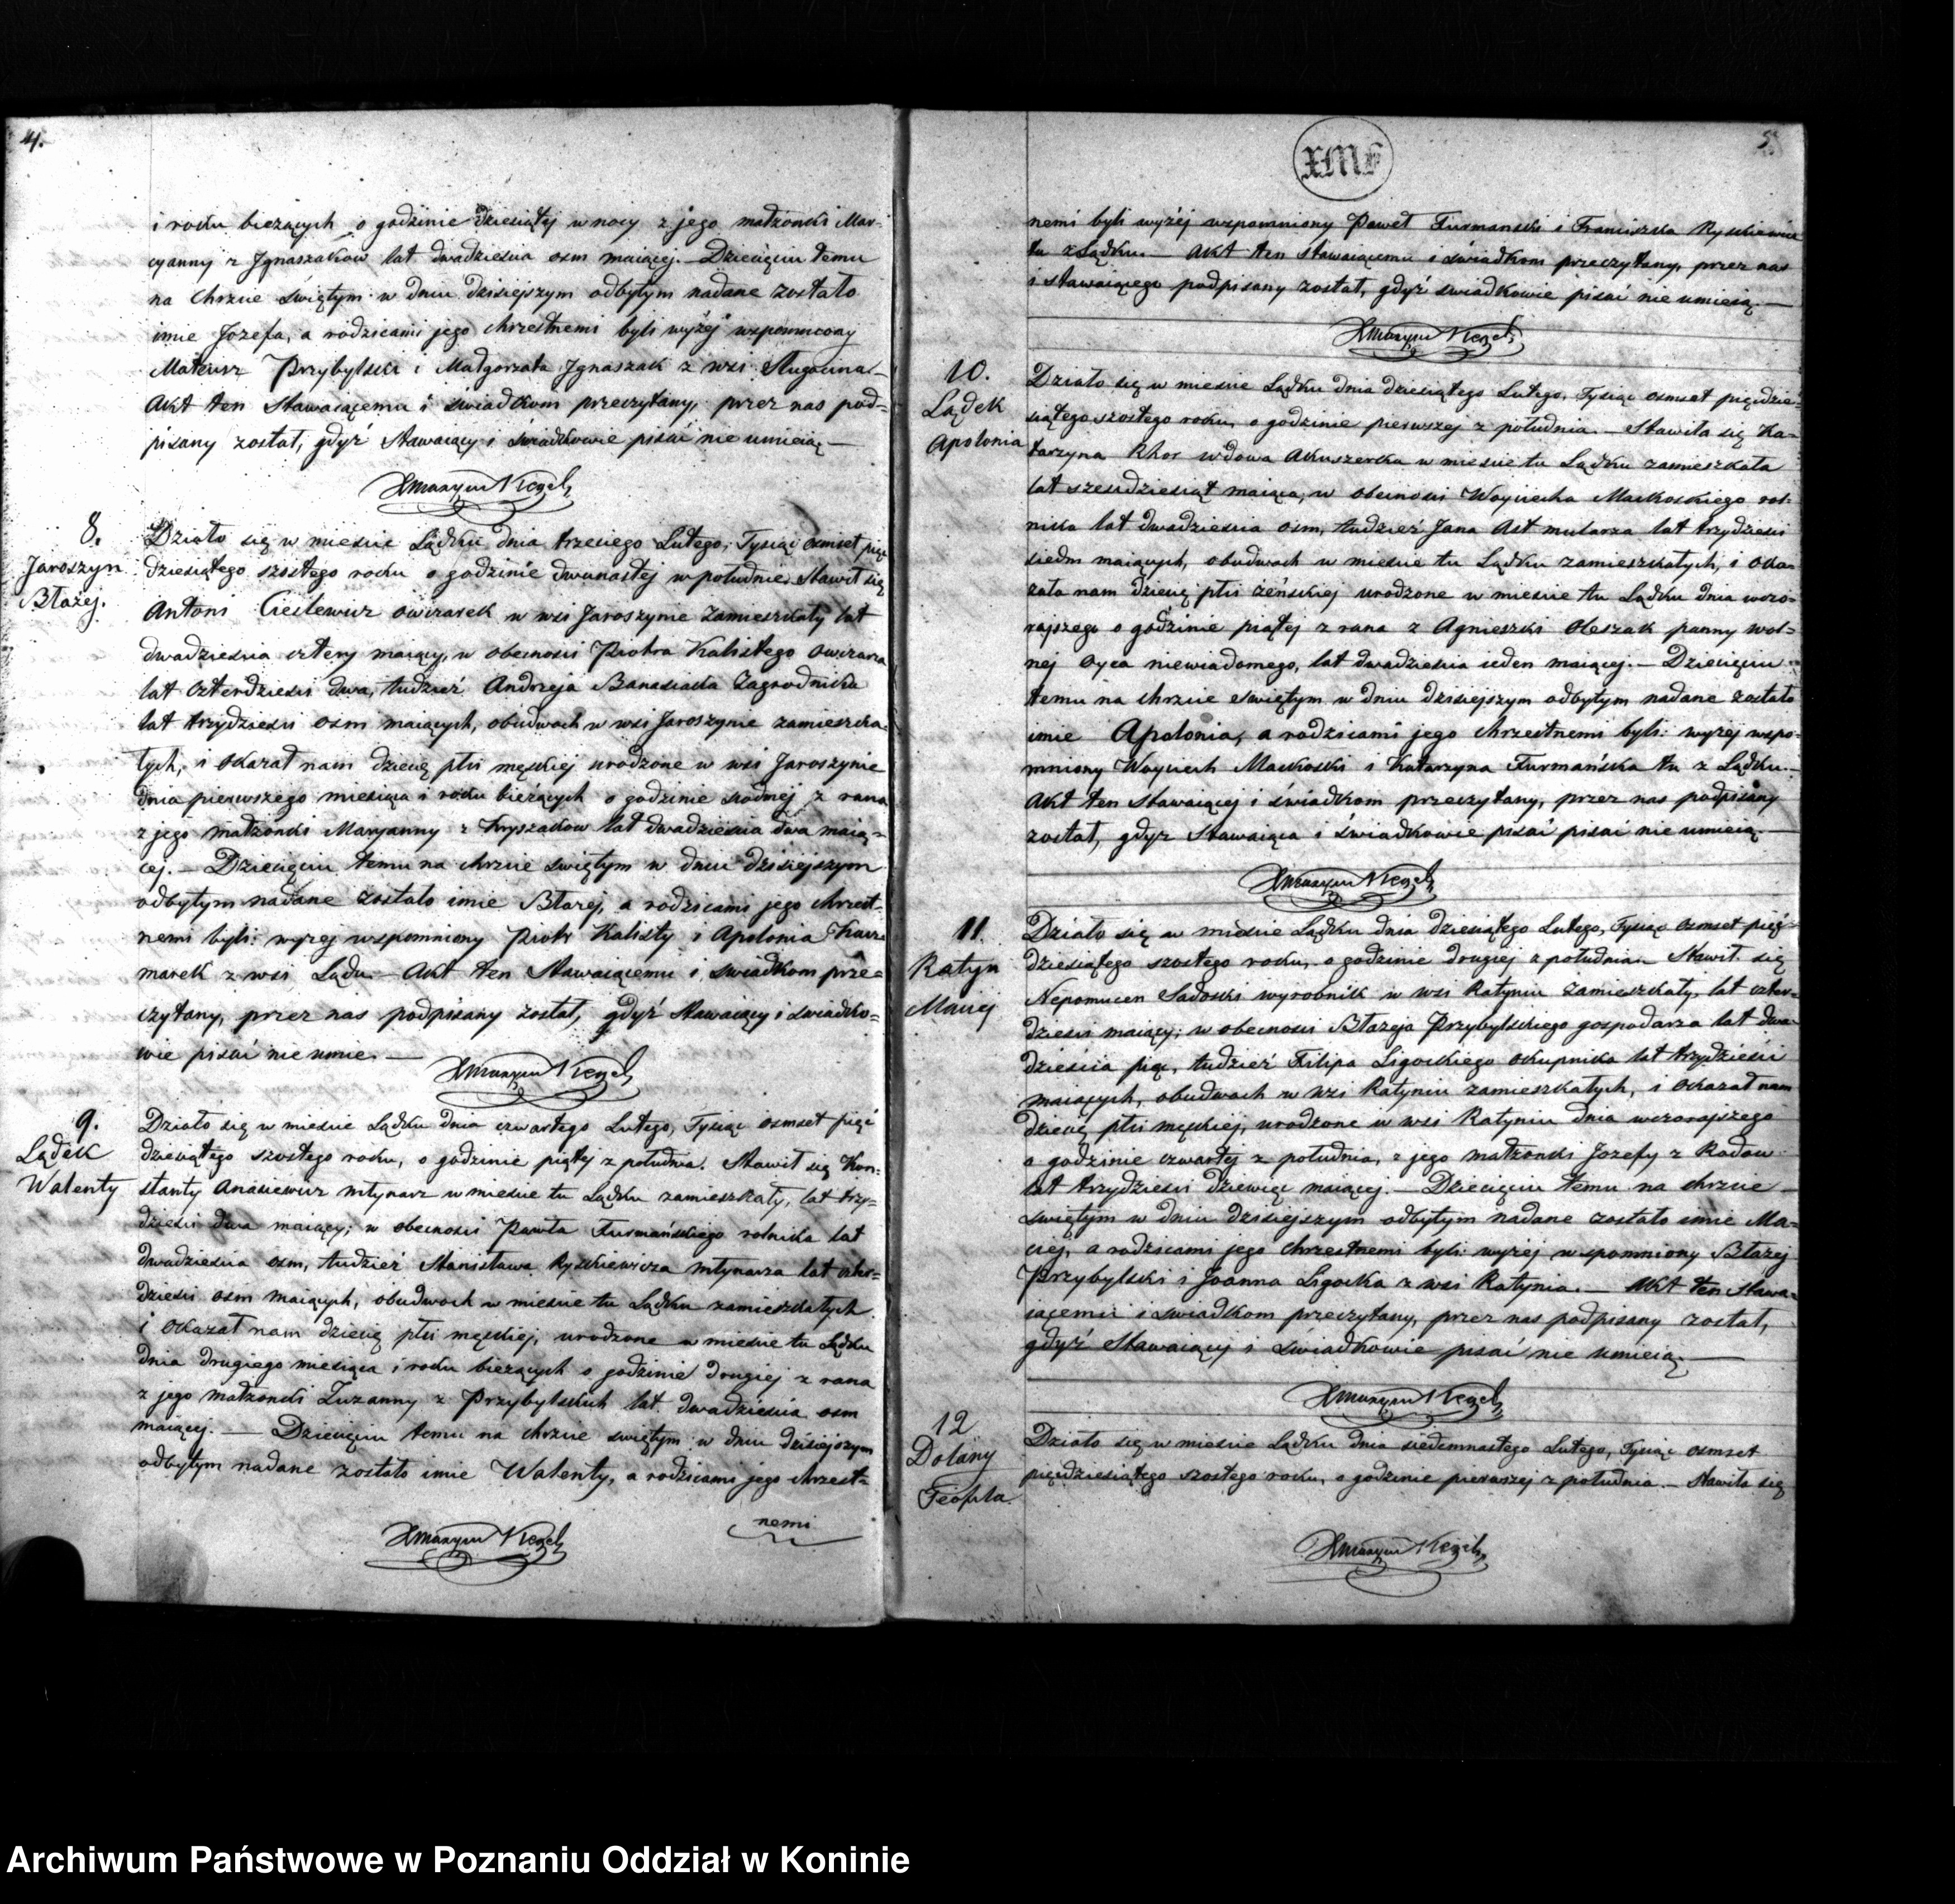 4.
i roku bieżących o godzinie dziesiątej w nocy z jego małżonki Mar-
cyanny z Jgnaszaków lat dwadzieścia ośm maiącej. — Dziecięciu temu
na chrzcie świętym w dniu dzisiejszym odbytym nadane zostało
imie Jozefa, a rodzicami jego chrzestnemi byli wyżej wspomniony
Mateusz Przybylski i Małgorzata Jgnaszak z wsi Ługocina —
Akt ten Stawaiącemu i świadkom przeczytany, przez nas pod-
pisany został, gdyż Stawaiący i świadkowie pisać nie umieią —
8.
Jaroszyn
Błażej.
Działo się w mieście Lądku dnia trzeciego Lutego, Tysiąc ośmset pięć
dziesiątego szóstego roku o godzinie dwunastej w południe. Stawił się
Antoni Cieślewicz owczarek w wsi Jaroszynie zamieszkały lat
dwadzieścia cztery maiący, w obecności Piotra Kalistego owczarza
lat czterdzieści dwa, tudzież Andrzeja Banasiaka Zagrodnika
lat trzydzieści ośm maiących, obudwóch w wsi Jaroszynie zamieszka-
łych, i okazał nam dziecię płci męskiej urodzone w wsi Jaroszynie
dnia pierwszego miesiąca i roku bieżących o godzinie siódmej z rana
z jego małżonki Maryanny z Kryszaków lat dwadzieścia dwa maią-
cej. — Dziecięciu temu na chrzcie świętym w dniu dzisiejszym
odbytym nadane zostało imie Błażej, a rodzicami jego chrzest-
nemi byli: wyżej wspomniony Piotr Kalisty i Apolonia
marek z wsi Lądu. — Akt ten Stawaiącemu i świadkom prze-
czytany, przez nas podpisany został, gdyż Stawaiący i świadko-
wie pisać nie umie. —
9.
Lądek
Walenty
Działo się w mieście Lądku dnia czwartego Lutego, Tysiąc ośmset pięć
dziesiątego szóstego roku, o godzinie piątej z południa. Stawił się Kon-
stanty Anasiewicz młynarz w mieście tu Lądku zamieszkały, lat trzy-
dzieści dwa maiący; w obecności Pawła Furmańskiego rolnika lat
dwadzieścia ośm, tudzież Stanisława Ryszkiewicza młynarza lat czter-
dzieści ośm maiących, obudwóch w mieście tu Lądku zamieszkałych
i okazał nam dziecię płci męskiej, urodzone w mieście tu Lądku
dnia drugiego miesiąca i roku bieżących o godzinie drugiej z rana
z jego małżonki Zuzanny z Przybylskich lat dwadzieścia ośm
maiącej. — Dziecięciu temu na chrzcie świętym w dniu dzisiejszym
odbytym nadane zostało imie Walenty, a rodzicami jego chrzest-
nemi
5.
XMF
nemi byli wyżej wspomniony Paweł Furmański i Franciszka Ryszkiewicz
tu z Lądku. — Akt ten Stawaiącemu i świadkom przeczytany, przez nas
i stawaiącego podpisany został, gdyż świadkowie pisać nie umieią. —
10.
Lądek
Apolonia
Działo się w mieście Lądku dnia dziesiątego Lutego, Tysiąc ośmset pięćdzie-
siątego szóstego roku, o godzinie pierwszej z południa. — Stawiła się Ka-
tarzyna Khor wdowa Akuszerka w mieście tu Lądku zamieszkała
lat sześćdziesiąt maiąca, w obecności Woyciecha Maćkoskiego rol-
nika lat dwadzieścia ośm, tudzież Jana Ast mularza lat trzydzieści
siedm maiących, obudwóch w mieście tu Lądku zamieszkałych, i oka-
zała nam dziecię płci żeńskiej urodzone w mieście tu Lądku dnia wczo-
rajszego o godzinie piątej z rana z Agnieszki Oleszak panny wol-
nej oyca niewiadomego, lat dwadzieścia ieden maiącej. — Dziecięciu
temu na chrzcie świętym w dniu dzisiejszym odbytym nadane zostało
imie Apolonia, a rodzicami jego chrzestnemi byli: wyżej wspo-
mniony Woyciech Maćkoski i Katarzyna Furmańska tu z Lądku. —
Akt ten Stawaiącej i świadkom przeczytany, przez nas podpisany
został, gdyż Stawaiąca i świadkowie pisać pisać nie umieią —
11.
Ratyn
Maciej
Działo się w mieście Lądku dnia dziesiątego Lutego, Tysiąc ośmset pięć-
dziesiątego szóstego roku, o godzinie drugiej z południa. — Stawił się
Nepomucen Sadoski wyrobnik w wsi Ratyniu zamieszkały, lat czter-
dzieści maiący; w obecności Błażeja Przybylskiego gospodarza lat dwa-
dzieścia pięć, tudzież Filipa Ligockiego okupnika lat trzydzieści
maiących, obudwóch w wsi Ratyniu zamieszkałych, i okazał nam
dziecię płci męskiej, urodzone w wsi Ratyniu dnia wczorajszego
o godzinie czwartej z południa, z jego małżonki Jozefy z Radow
lat trzydzieści dziewięć maiącej. — Dziecięciu temu na chrzcie
świętym w dniu dzisiejszym odbytym nadane zostało imie Ma-
ciej, a rodzicami jego chrzestnemi byli: wyżej wspomniony Błażej
Przybylski i Joanna Ligocka z wsi Ratynia. — Akt ten Stawa-
iącemu i świadkom przeczytany, przez nas podpisany został,
gdyż Stawaiący i świadkowie pisać nie umieią —
12
Dolany
Teofila
Działo się w mieście Lądku dnia siedemnastego Lutego, Tysiąc ośmset
pięćdziesiątego szóstego roku, o godzinie pierwszej z południa. — Stawiła się
Archiwum Państwowe w Poznaniu Oddział w Koninie